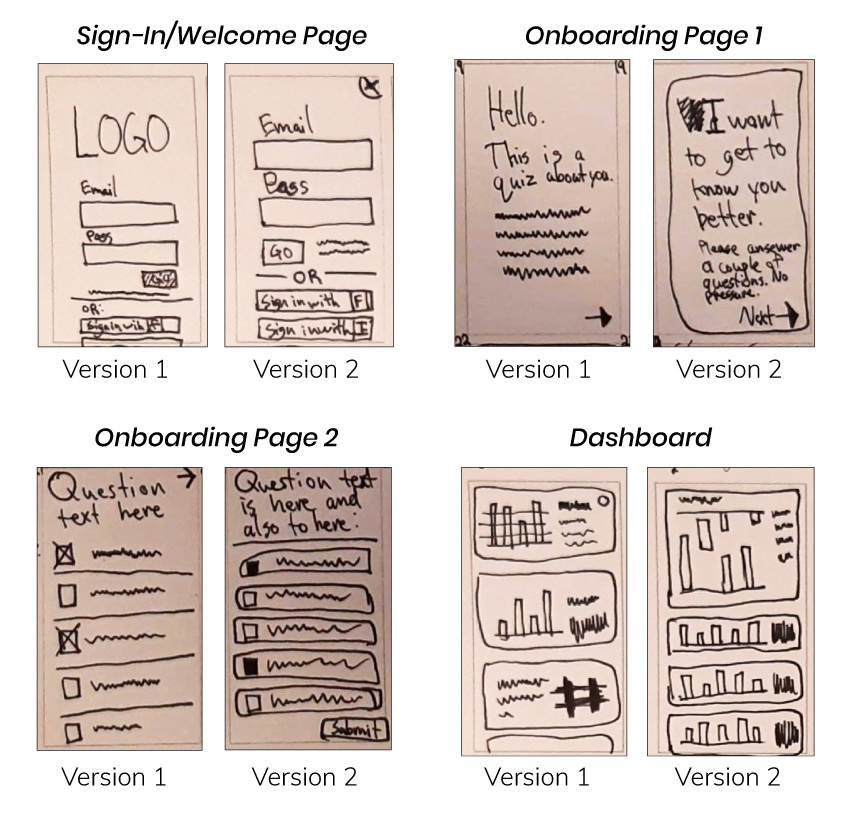 Sign-In/Welcome Page
LOGO
Email
Pass
GO
OR:
Sign in with F
Version 1
Email
Pass
GO
OR
Sign in with F
Sign in with I
Version 2
Onboarding Page 1
Hello.
This is a
quiz about you.
Version 1
I want
to get to
know you
better.
Please ansewer
a couple of
questions. No
pressure.
Next
Version 2
Onboarding Page 2
Question
text here
Version 1
Question text
is here and
also to here:
Submit
Version 2
Dashboard
#
Version 1
Version 2